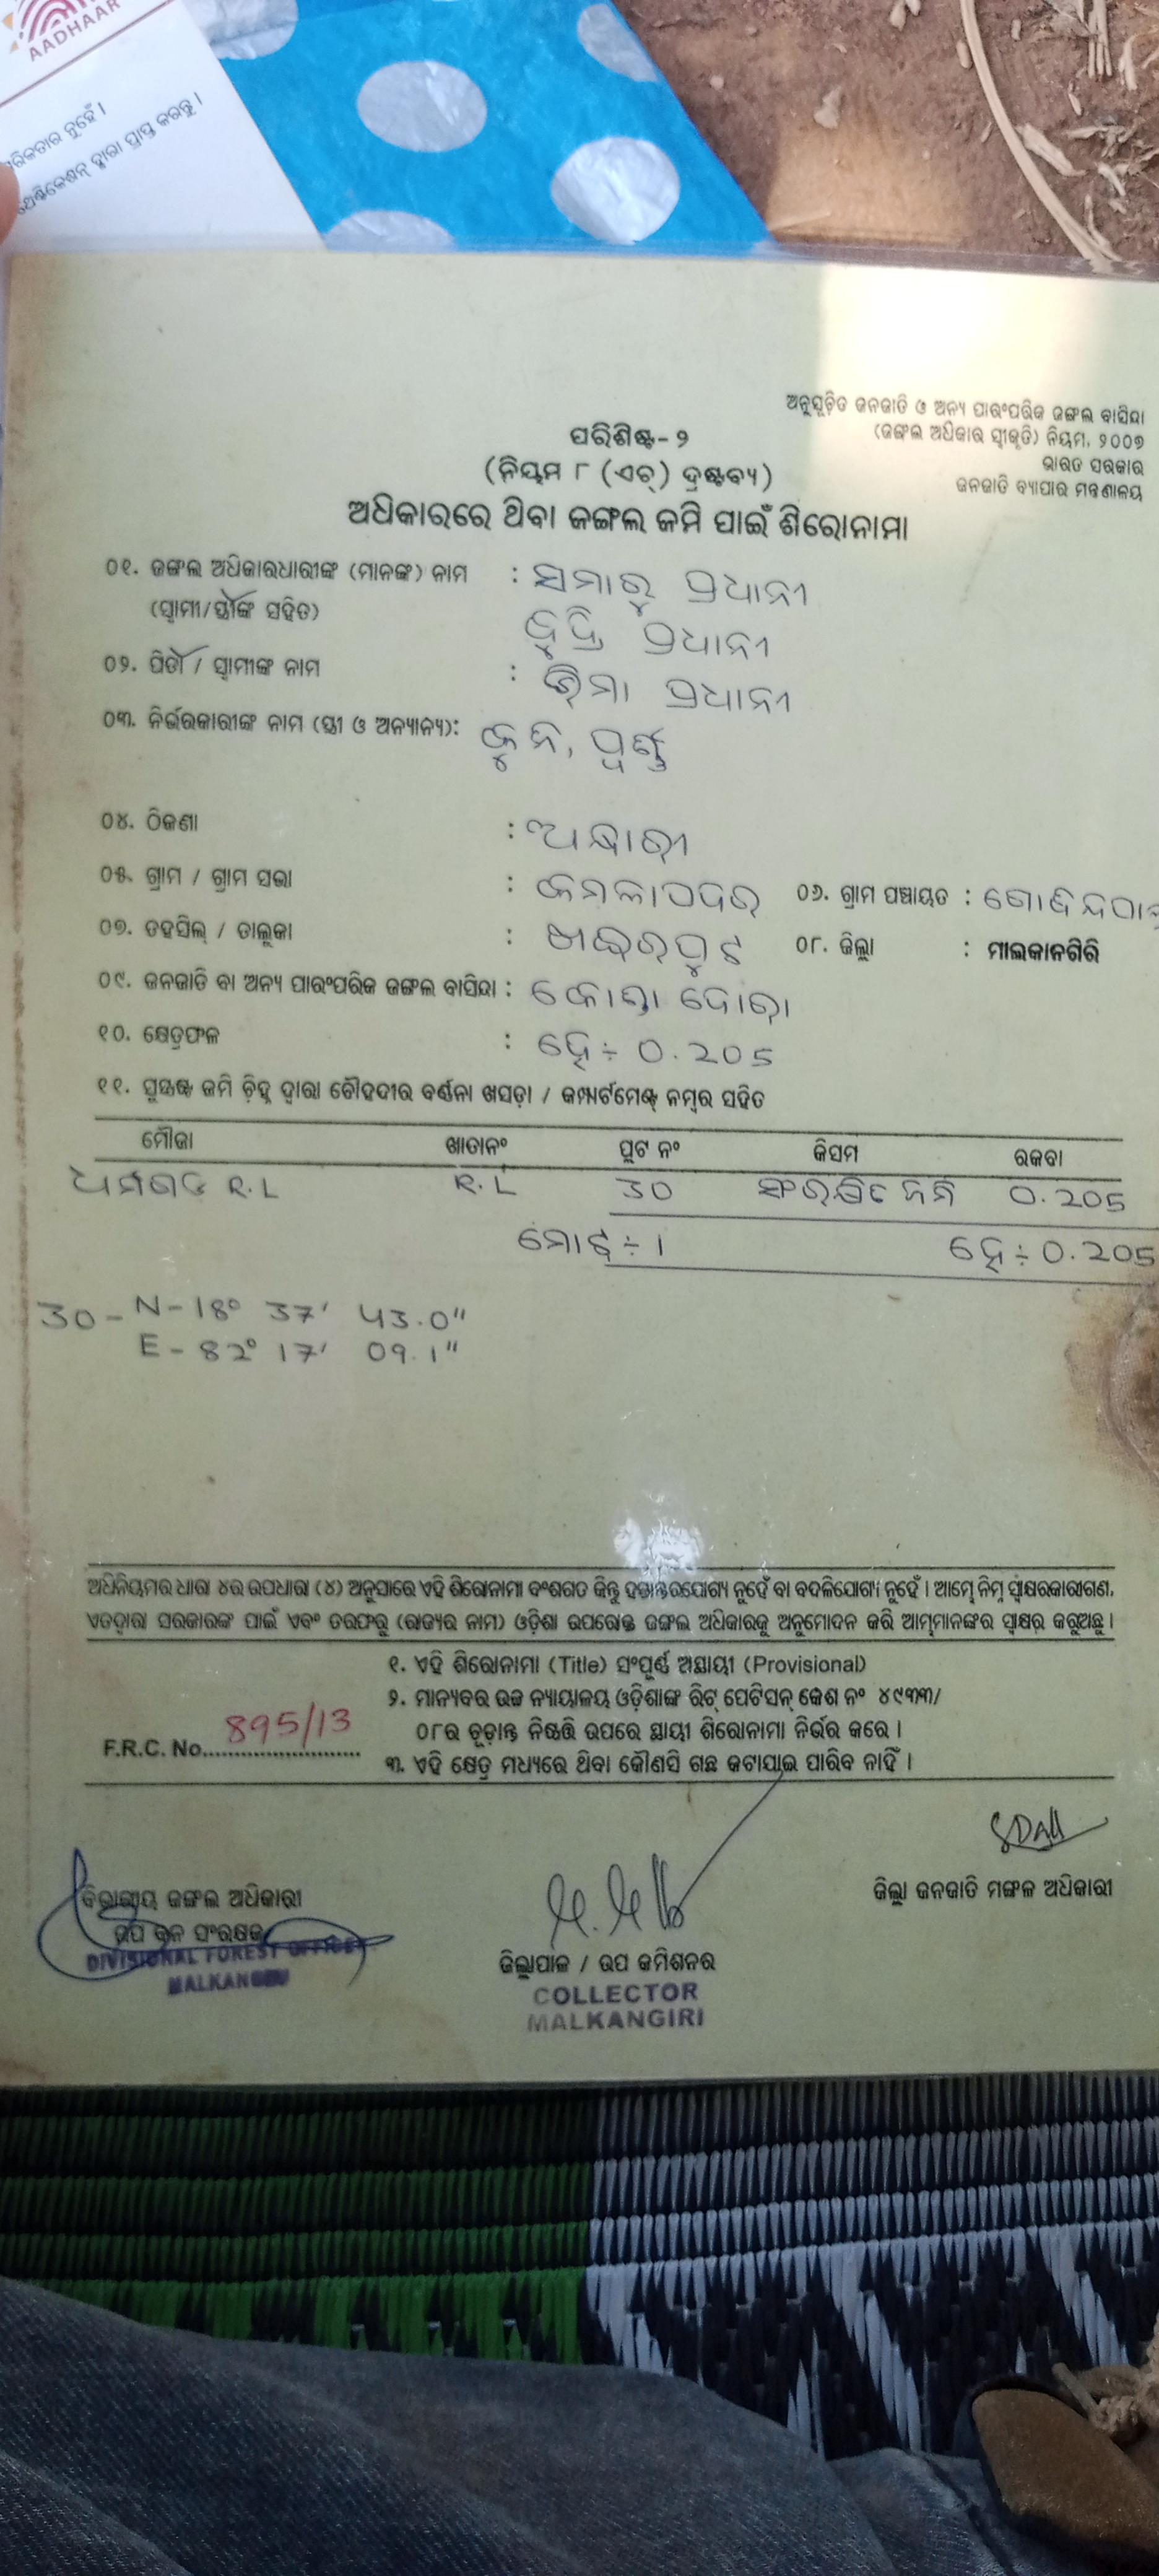 AADHAAR
ନୁହେଁ ।
ଦ୍ୱାରା ପ୍ରାପ୍ତ କରନ୍ତୁ ।
ଅନୁସୂଚିତ ଜନଜାତି ଓ ଅନ୍ୟ ପାରଂପରିକ ଜଙ୍ଗଲ ବାସିନ୍ଦା
(ଜଙ୍ଗଲ ଅଧିକାର ସ୍ୱୀକୃତି) ନିୟମ, ୨୦୦୭
ଭାରତ ସରକାର
ଜନଜାତି ବ୍ୟାପାର ମନ୍ତ୍ରଣାଳୟ
ପରିଶିଷ୍ଟ-୨
(ନିୟମ ୮ (ଏଚ୍) ଦ୍ରଷ୍ଟବ୍ୟ)
ଅଧିକାରରେ ଥିବା ଜଙ୍ଗଲ ଜମି ପାଇଁ ଶିରୋନାମା
୦୧. ଜଙ୍ଗଲ ଅଧିକାରଧାରୀଙ୍କ (ମାନଙ୍କ) ନାମ : ସମାରୁ ପ୍ରଧାନୀ
(ସ୍ୱାମୀ/ସ୍ତ୍ରୀଙ୍କ ସହିତ) ପ୍ରଧାନୀ
୦୨. ପିତା / ସ୍ୱାମୀଙ୍କ ନାମ : ପ୍ରଧାନୀ
୦୩. ନିର୍ଭରକାରୀଙ୍କ ନାମ (ସ୍ତ୍ରୀ ଓ ଅନ୍ୟାନ୍ୟ):
୦୪. ଠିକଣା :
୦୫. ଗ୍ରାମ / ଗ୍ରାମ ସଭା : କମଳାପଦର ୦୬. ଗ୍ରାମ ପଞ୍ଚାୟତ :
୦୭. ତହସିଲ୍ / ତାଲୁକା : ଖଇରପୁଟ ୦୮. ଜିଲ୍ଲା : ମାଲକାନଗିରି
୦୯. ଜନଜାତି ବା ଅନ୍ୟ ପାରଂପରିକ ଜଙ୍ଗଲ ବାସିନ୍ଦା : କୋଣ୍ଡା ଦୋରା
୧୦. କ୍ଷେତ୍ରଫଳ : ହେ÷ 0.205
୧୧. ସୁସ୍ପଷ୍ଟ ଜମି ଚିହ୍ନ ଦ୍ୱାରା ଚୌହଦୀର ବର୍ଣ୍ଣନା ଖସଡ଼ା / କମ୍ପାର୍ଟମେଣ୍ଟ୍ ନମ୍ବର ସହିତ
ମୌଜା ଖାତାନଂ ପ୍ଲଟ ନଂ କିସମ ରକବା
R.L R.L 30 0.205
ମୋଟ୍ ÷ 1 ହେ÷0.205
30- N-18° 37' 43.0"
E-82° 17' 09.1"
ଅଧିନିୟମର ଧାରା ୪ର ଉପଧାରା (୪) ଅନୁସାରେ ଏହି ଶିରୋନାମା ବଂଶଗତ କିନ୍ତୁ ହସ୍ତାନ୍ତରଯୋଗ୍ୟ ନୁହେଁ ବା ବଦଳିଯୋଗ୍ୟ ନୁହେଁ । ଆମ୍ଭେ ନିମ୍ନ ସ୍ୱାକ୍ଷରକାରୀଗଣ,
ଏତଦ୍ୱାରା ସରକାରଙ୍କ ପାଇଁ ଏବଂ ତରଫରୁ (ରାଜ୍ୟର ନାମ) ଓଡ଼ିଶା ଉପରୋକ୍ତ ଜଙ୍ଗଲ ଅଧିକାରକୁ ଅନୁମୋଦନ କରି ଆମ୍ଭମାନଙ୍କର ସ୍ୱାକ୍ଷର କରୁଅଛୁ ।
୧. ଏହି ଶିରୋନାମା (Title) ସଂପୂର୍ଣ୍ଣ ଅସ୍ଥାୟୀ (Provisional)
୨. ମାନ୍ୟବର ଉଚ୍ଚ ନ୍ୟାୟାଳୟ ଓଡ଼ିଶାଙ୍କ ରିଟ୍ ପେଟିସନ୍ କେଶ ନଂ ୪୯୩୩/
୦୮ର ଚୂଡ଼ାନ୍ତ ନିଷ୍ପତ୍ତି ଉପରେ ସ୍ଥାୟୀ ଶିରୋନାମା ନିର୍ଭର କରେ ।
F.R.C. No. 895/13
୩. ଏହି କ୍ଷେତ୍ର ମଧ୍ୟରେ ଥିବା କୌଣସି ଗଛ କଟାଯାଇ ପାରିବ ନାହିଁ ।
ଜିଲ୍ଲା ଜନଜାତି ମଙ୍ଗଳ ଅଧିକାରୀ
ବିଭାଗୀୟ ଜଙ୍ଗଲ ଅଧିକାରୀ
ଉପ ବନ ସଂରକ୍ଷକ
DIVISIONAL FOREST OFFICER
MALKANGIRI
ଜିଲ୍ଲାପାଳ / ଉପ କମିଶନର
COLLECTOR
MALKANGIRI